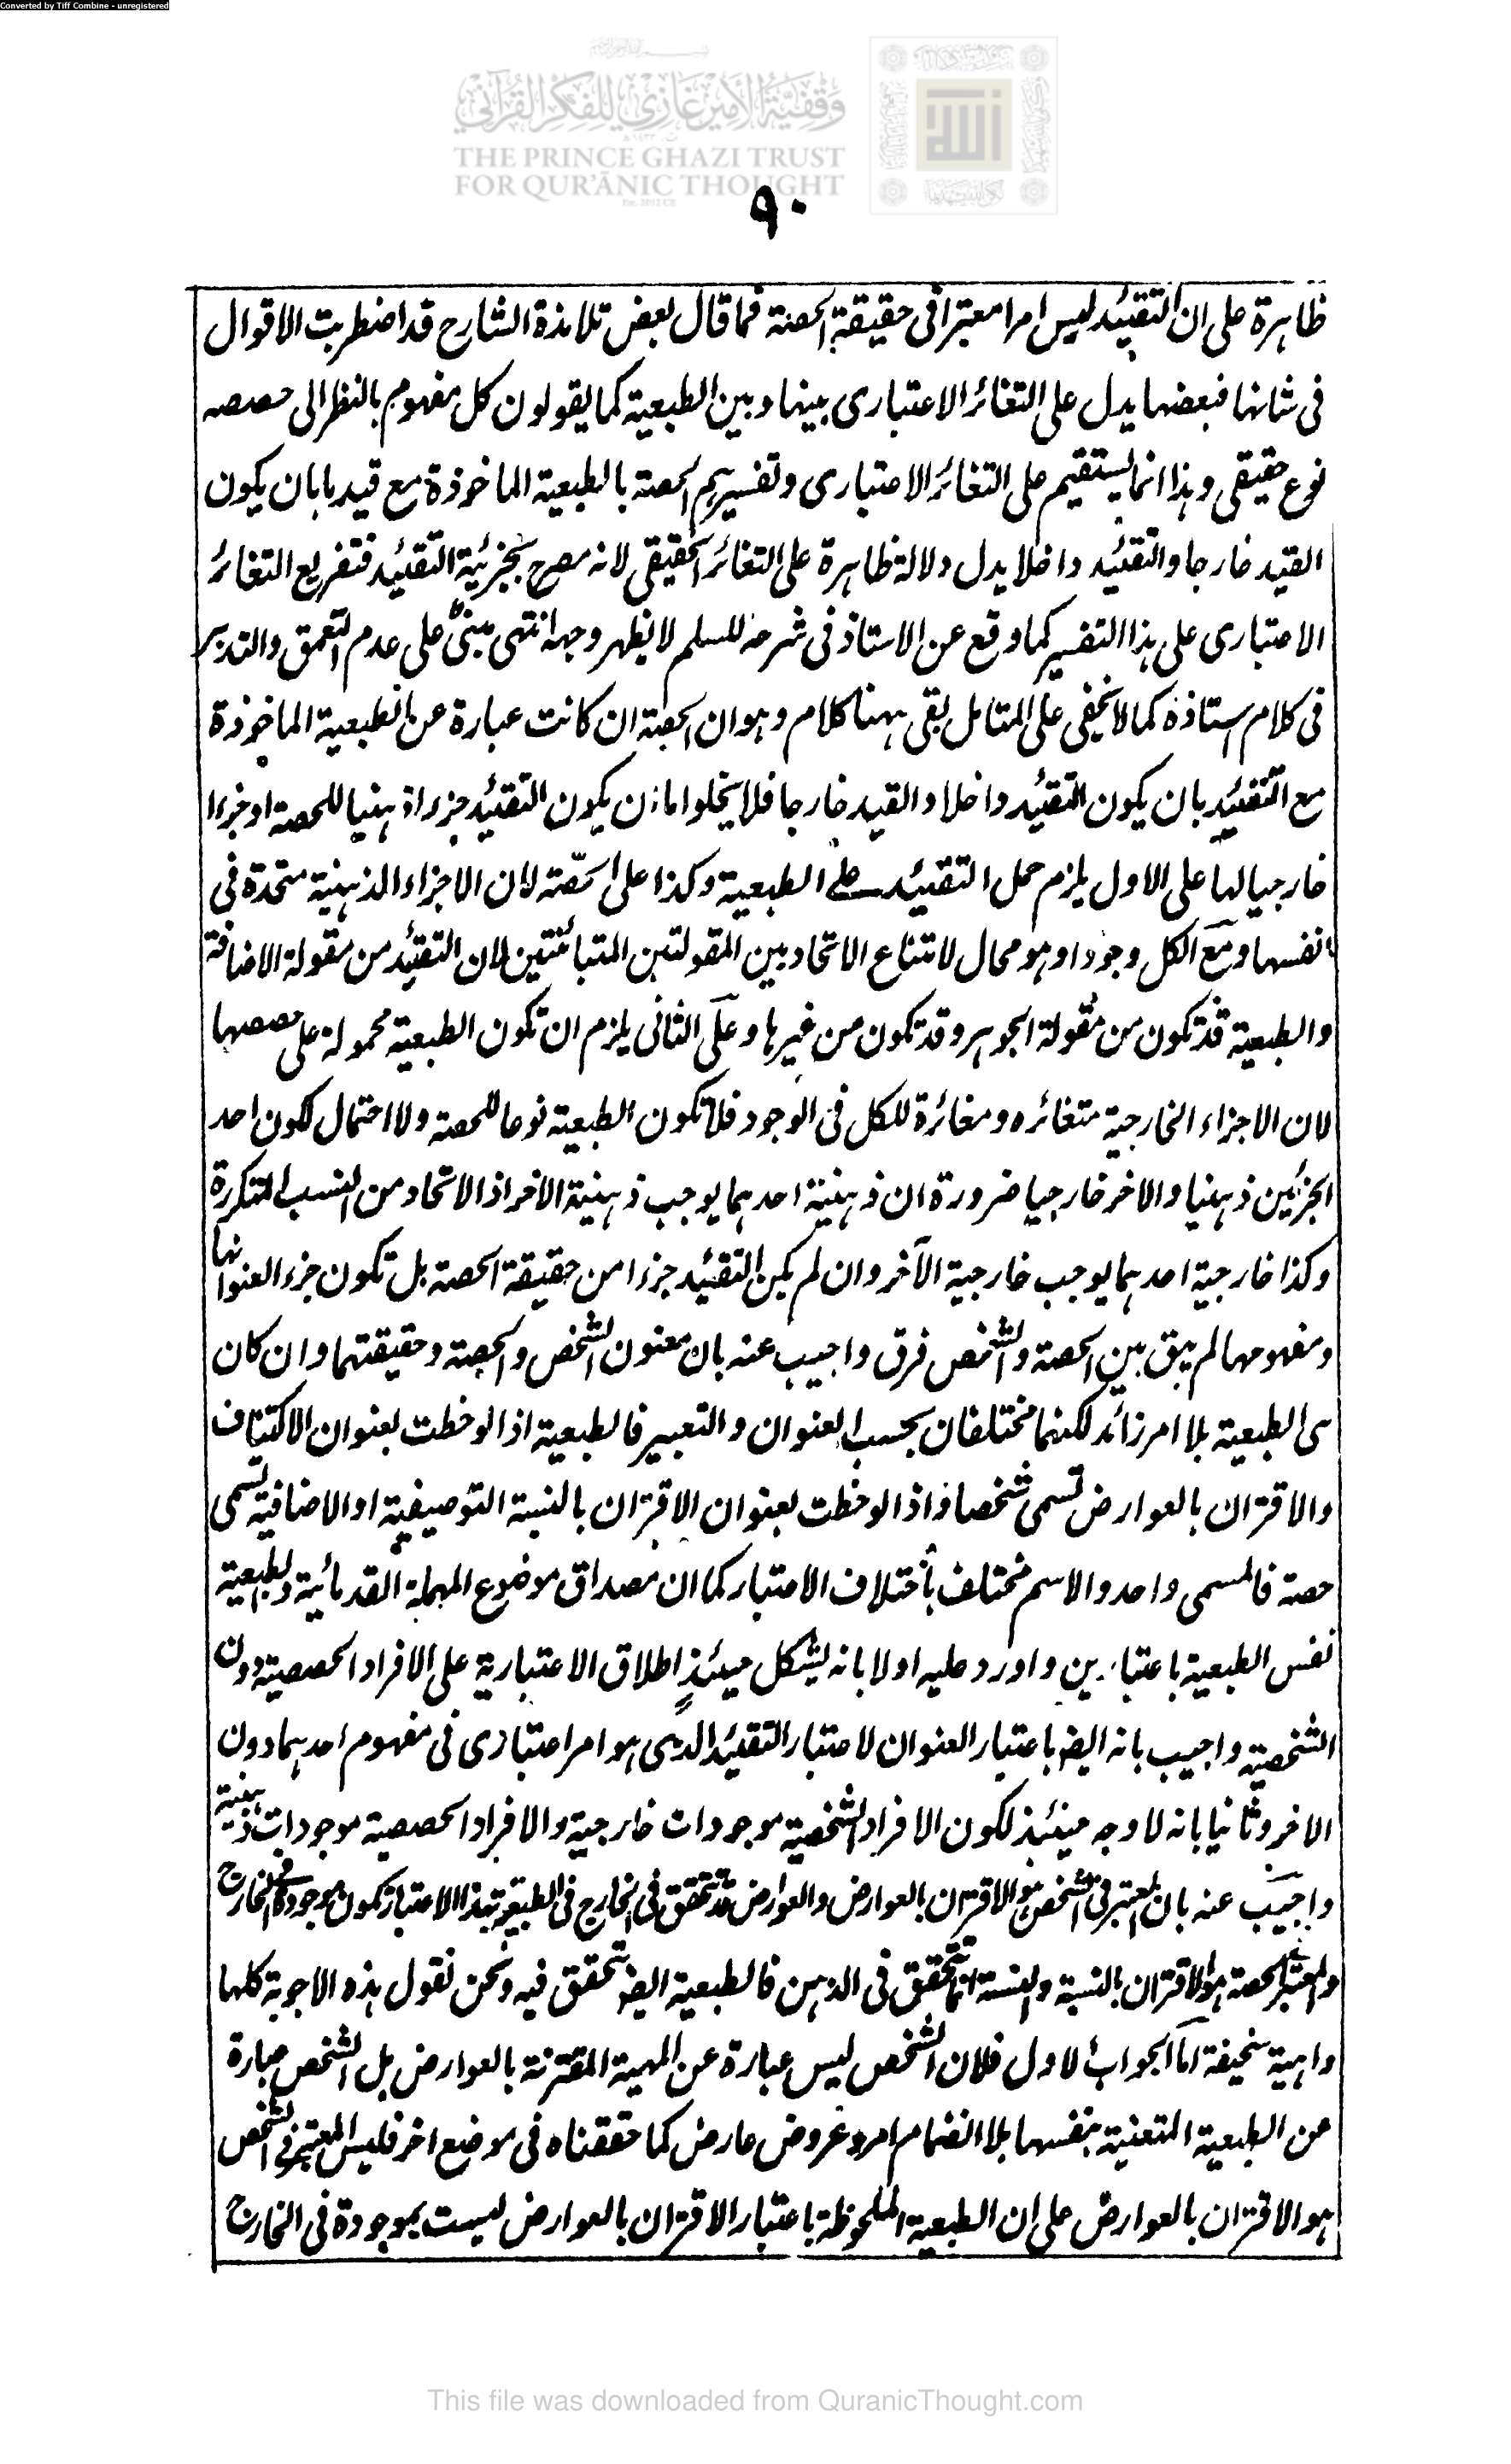 Converted by Tiff Combine - unregistered
وقفية الأمير غازي للفكر القرآني
THE PRINCE GHAZI TRUST
FOR QUR'ĀNIC THOUGHT
Est. 2012 CE
٩٠
ظاهرة على ان التقييد ليس امرا معتبرا فى حقيقة الحصة فما قال بعض تلامذة الشارح قد اضطربت الاقوال
فى شانها فبعضها يدل على التغائر الاعتبارى بينها وبين الطبعية كما يقولون كل مفهوم بالنظر الى حصصه
نوع حقيقى وهذا انما يستقيم على التغائر الاعتبارى وتفسيرهم الحصة بالطبعية الماخوذة مع قيد ما بان يكون
القيد خارجا والتقييد داخلا يدل دلالة ظاهرة على التغائر الحقيقى لانه مصرح بجزئية التقييد فتفريع التغائر
الاعتبارى على هذا التفسير كما وقع عن الاستاذ فى شرحه للسلم لا يظهر وجهه انتهى مبنى على عدم التعمق والتدبر
فى كلام استاذه كما لا يخفى على المتامل بقى ههنا كلام وهو ان الحصة ان كانت عبارة عن الطبعية الماخوذة
مع التقييد بان يكون التقييد داخلا والقيد خارجا فلا يخلو اما ان يكون التقييد جزءا ذهنيا للحصة او جزءا
خارجيا لها على الاول يلزم حمل التقييد على الطبعية وكذا على الحصة لان الاجزاء الذهنية متحدة فى
انفسها ومع الكل وجودا وهو محال لامتناع الاتحاد بين المقولتين المتبائنتين لان التقييد من مقولة الاضافة
والطبعية قد تكون من مقولة الجوهر وقد تكون من غيرها وعلى الثانى يلزم ان تكون الطبعية محمولة على حصصها
لان الاجزاء الخارجية متغائره ومغائرة للكل فى الوجود فلا تكون الطبعية نوعا للحصة ولا احتمال لكون احد
الجزئين ذهنيا والاخر خارجيا ضرورة ان ذهنية احدهما يوجب ذهنية الاخر اذ الاتحاد من النسب المتكررة
وكذا خارجية احدهما يوجب خارجية الآخر وان لم يكن التقييد جزءا من حقيقة الحصة بل تكون جزء العنوانها
ومفهومها لم يبق بين الحصة والشخص فرق واجيب عنه بان معنون الشخص والحصة وحقيقتهما وان كان
هى الطبعية بلا امر زائد لكنهما مختلفان بحسب العنوان والتعبير فالطبعية اذا لوحظت بعنوان الاكتناف
والاقتران بالعوارض تسمى شخصا واذا لوحظت بعنوان الاقتران بالنسبة التوصيفية او الاضافية تسمى
حصة فالمسمى واحد والاسم مختلف باختلاف الاعتبار كما ان مصداق موضوع المهملة القدمائية والطبعية
نفس الطبعية باعتبارين واورد عليه اولا بانه يشكل حينئذٍ اطلاق الاعتبارية على الافراد الحصصية دون
الشخصية واجيب بانه ايضا باعتبار العنوان لاعتبار التقييد الذى هو امر اعتبارى فى مفهوم احدهما دون
الاخر وثانيا بانه لا وجه حينئذ لكون الافراد الشخصية موجودات خارجية والافراد الحصصية موجودات ذهنية
واجيب عنه بان المعتبر فى الشخص هو الاقتران بالعوارض والعوارض قد تتحقق فى الخارج فالطبعية بهذا الاعتبار تكون موجودة فى الخارج
والمعتبر فى الحصة هو الاقتران بالنسبة والنسبة انما تتحقق فى الذهن فالطبعية ايضا تتحقق فيه ونحن نقول هذه الاجوبة كلها
واهية سخيفة اما الجواب الاول فلان الشخص ليس عبارة عن المهية المقترنة بالعوارض بل الشخص عبارة
عن الطبعية المتعينة بنفسها بلا انضمام امر وعروض عارض كما حققناه فى موضع اخر فليس المعتبر فى الشخص
هو الاقتران بالعوارض على ان الطبعية الملحوظة باعتبار الاقتران بالعوارض ليست بموجودة فى الخارج
This file was downloaded from QuranicThought.com